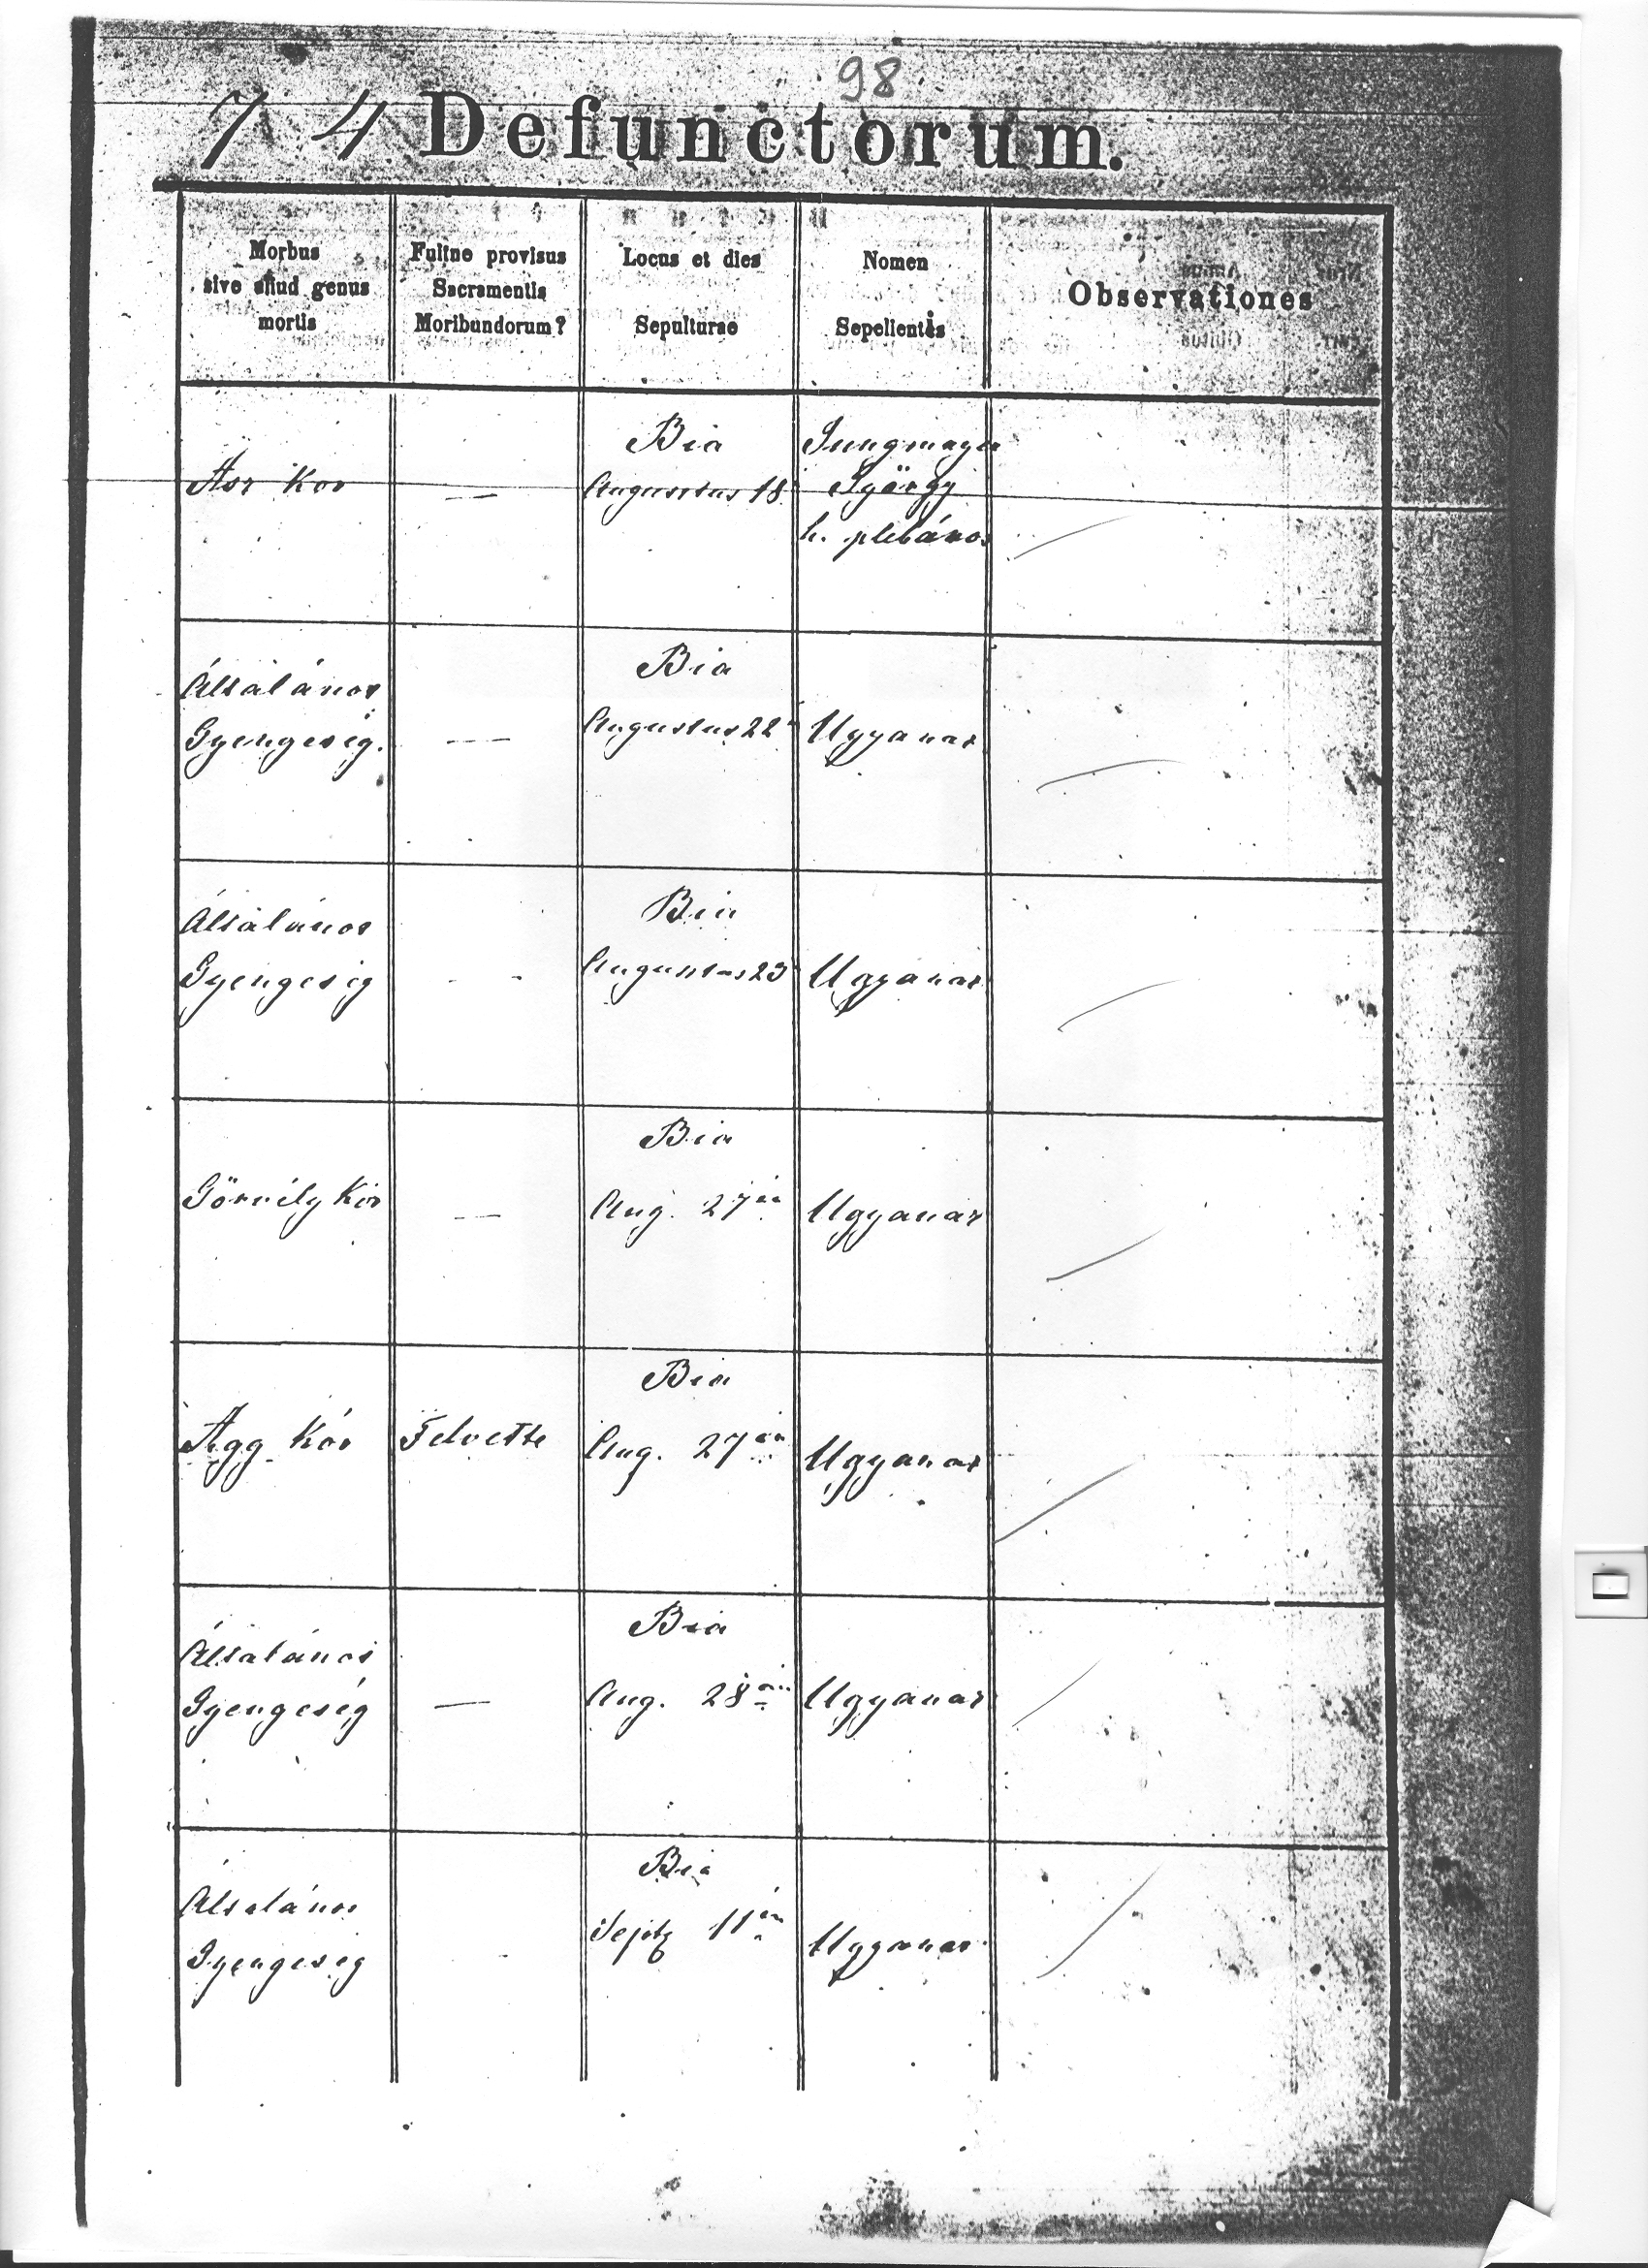 98
7 4 Defunctorum.
Morbus
sive aliud genus
mortis
Fuitne provisus
Sacramentis
Moribundorum?
Locus et dies
Sepulturae
Nomen
Sepelientis
Observationes
Kor
—
Bia
Augustus 18
Jungmayer
György
h. plébános
Általános
Gyengeség.
—
Bia
Augustus 22
Ugyanaz
Általános
Gyengeség
Bia
Augustus 23
Ugyanaz
Görvély Kór
—
Bia
Aug. 27én
Ugyanaz
Agg Kór
Felvette
Bia
Aug. 27én
Ugyanaz
Általános
Gyengeség
—
Bia
Aug. 28án
Ugyanaz
Általános
Gyengeség
Bia
Septb 11én
Ugyanaz